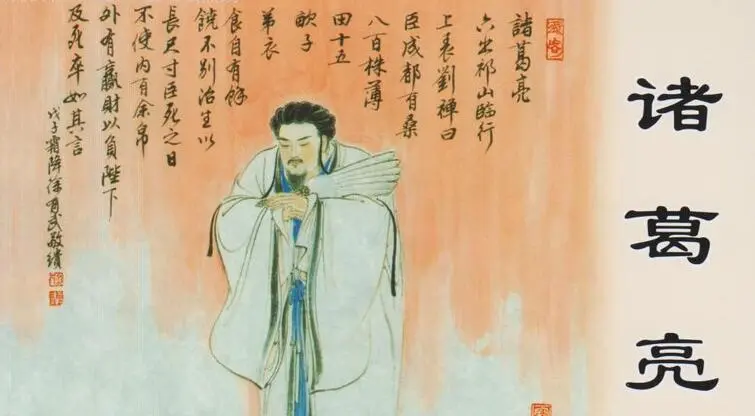 诸葛亮
諸葛亮
六出祁山臨行
上表劉禪曰
臣成都有桑
八百株薄
田十五
畝子
弟衣
食自有餘
饒不別治生以
長尺寸臣死之日
不使內有余帛
外有贏財以負陛下
及死卒如其言
戊子霜降徐有武敬繢